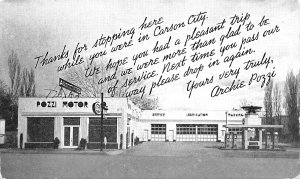 Thanks for stopping here
while you were in Carson City.
We hope you had a pleasant trip
and we were more than glad to be
of service. Next time you pass our
way please drop in again.
Yours very truly,
Archie Pozzi
POZZI MOTOR Co.
SERVICE
LUBRICATION